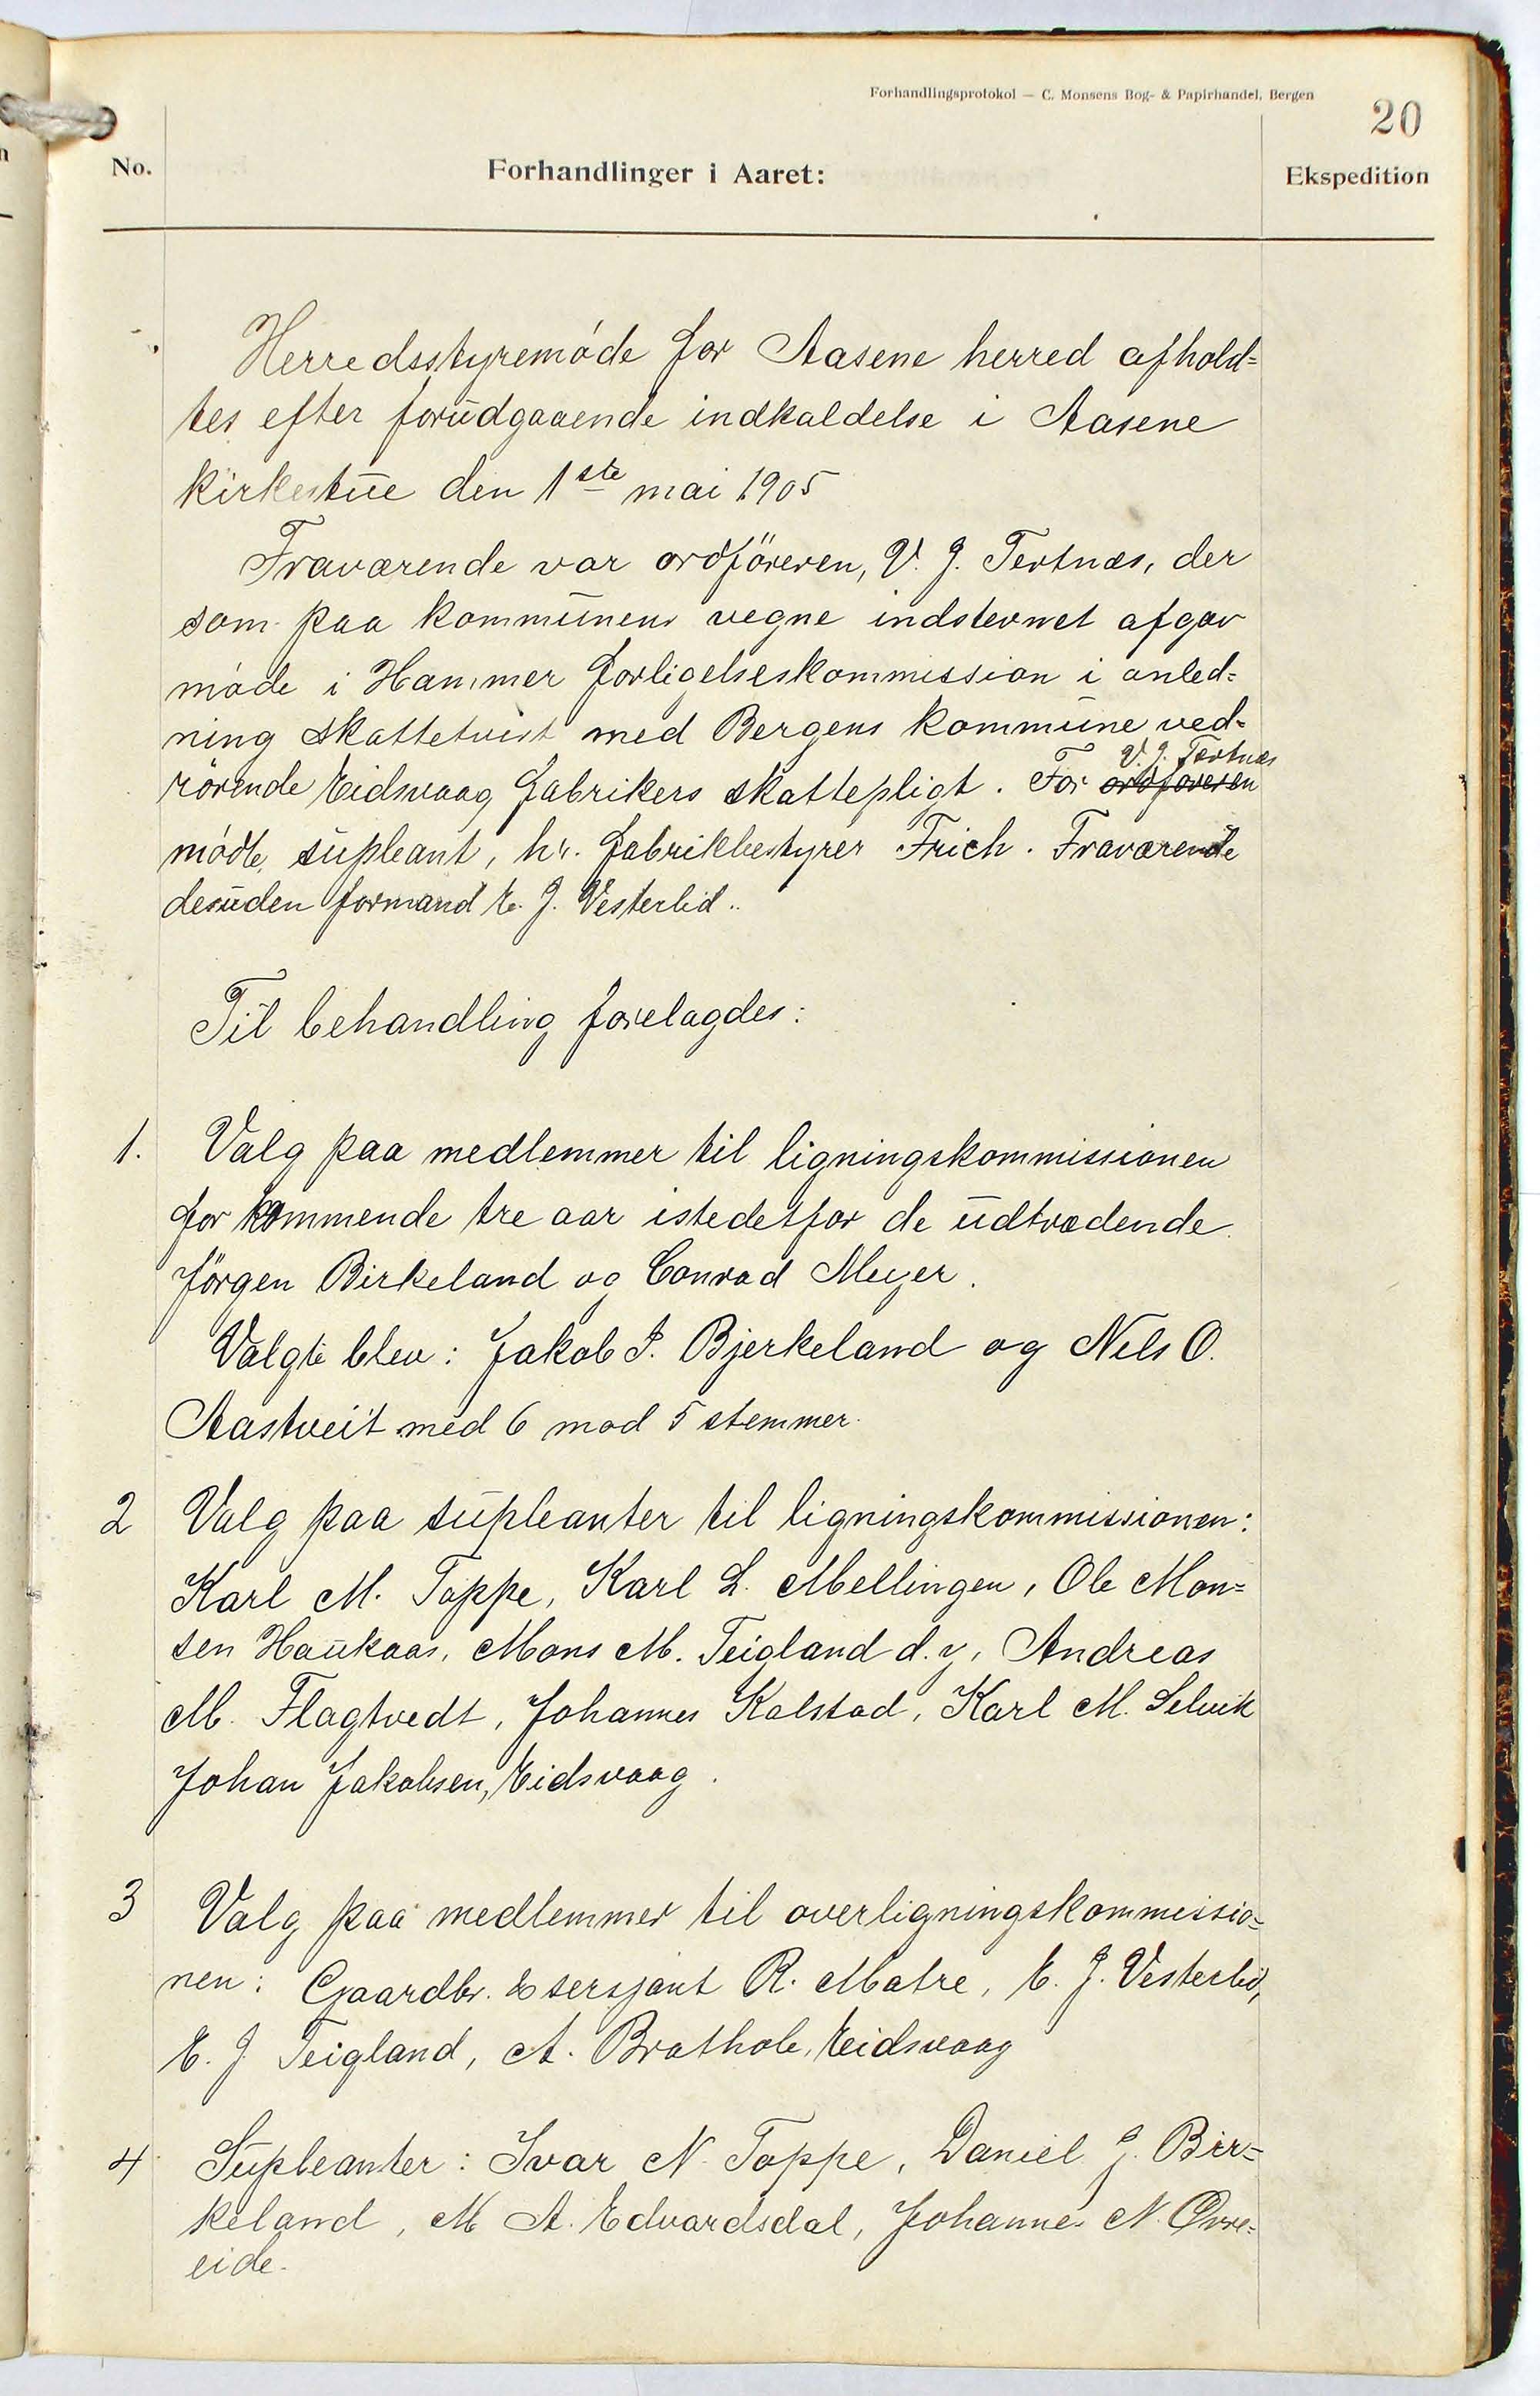 Forhandlingsprotokol — C. Monsens Bog- & Papirhandel, Bergen
20
No.
Forhandlinger i Aaret:
Ekspedition
Herredsstyremöde for Aasene herred afhold=
tes efter forudgaaende indkaldelse i Aasene
kirkestue den 1ste mai 1905
Fraværende var ordföreren, V. J. Tertnæs, der
som paa kommunens vegne indstevnet afgav
möde i Hammer forligelseskommission i anled=
ning skattetvist med Bergens kommune ved=
V. J. Tertnæs
rörende Eidsvaag fabrikers skattepligt. For ordföreren
mödte supleant, hr. fabrikbestyrer Frich. Fraværende
desuden formand E. J. Vesterlid.
Til behandling forelagdes:
1. Valg paa medlemmer til ligningskommissionen
for kommende tre aar istedetfor de udtrædende
Jörgen Birkeland og Conrad Meyer.
Valgte blev: Jakob J. Bjerkeland og Nils O.
Aastveit med 6 mod 5 stemmer.
2 Valg paa supleanter til ligningskommissionen:
Karl M. Toppe, Karl L. Mellingen, Ole Mon=
sen Haukaas, Mons M. Teigland d. y, Andreas
M. Flagtvedt, Johannes Kalstad, Karl M. Selvik
Johan Jakobsen, Eidsvaag.
3 Valg paa medlemmer til overligningskommissio=
nen: Gaardbr. & sersjant R. Matre, E. J. Vesterlid,
E. J. Teigland, A. Brathole, Eidsvaag
4 Supleanter: Ivar N. Toppe, Daniel J. Bir=
keland, M A. Edvardsdal, Johannes N. Øvre=
eide.